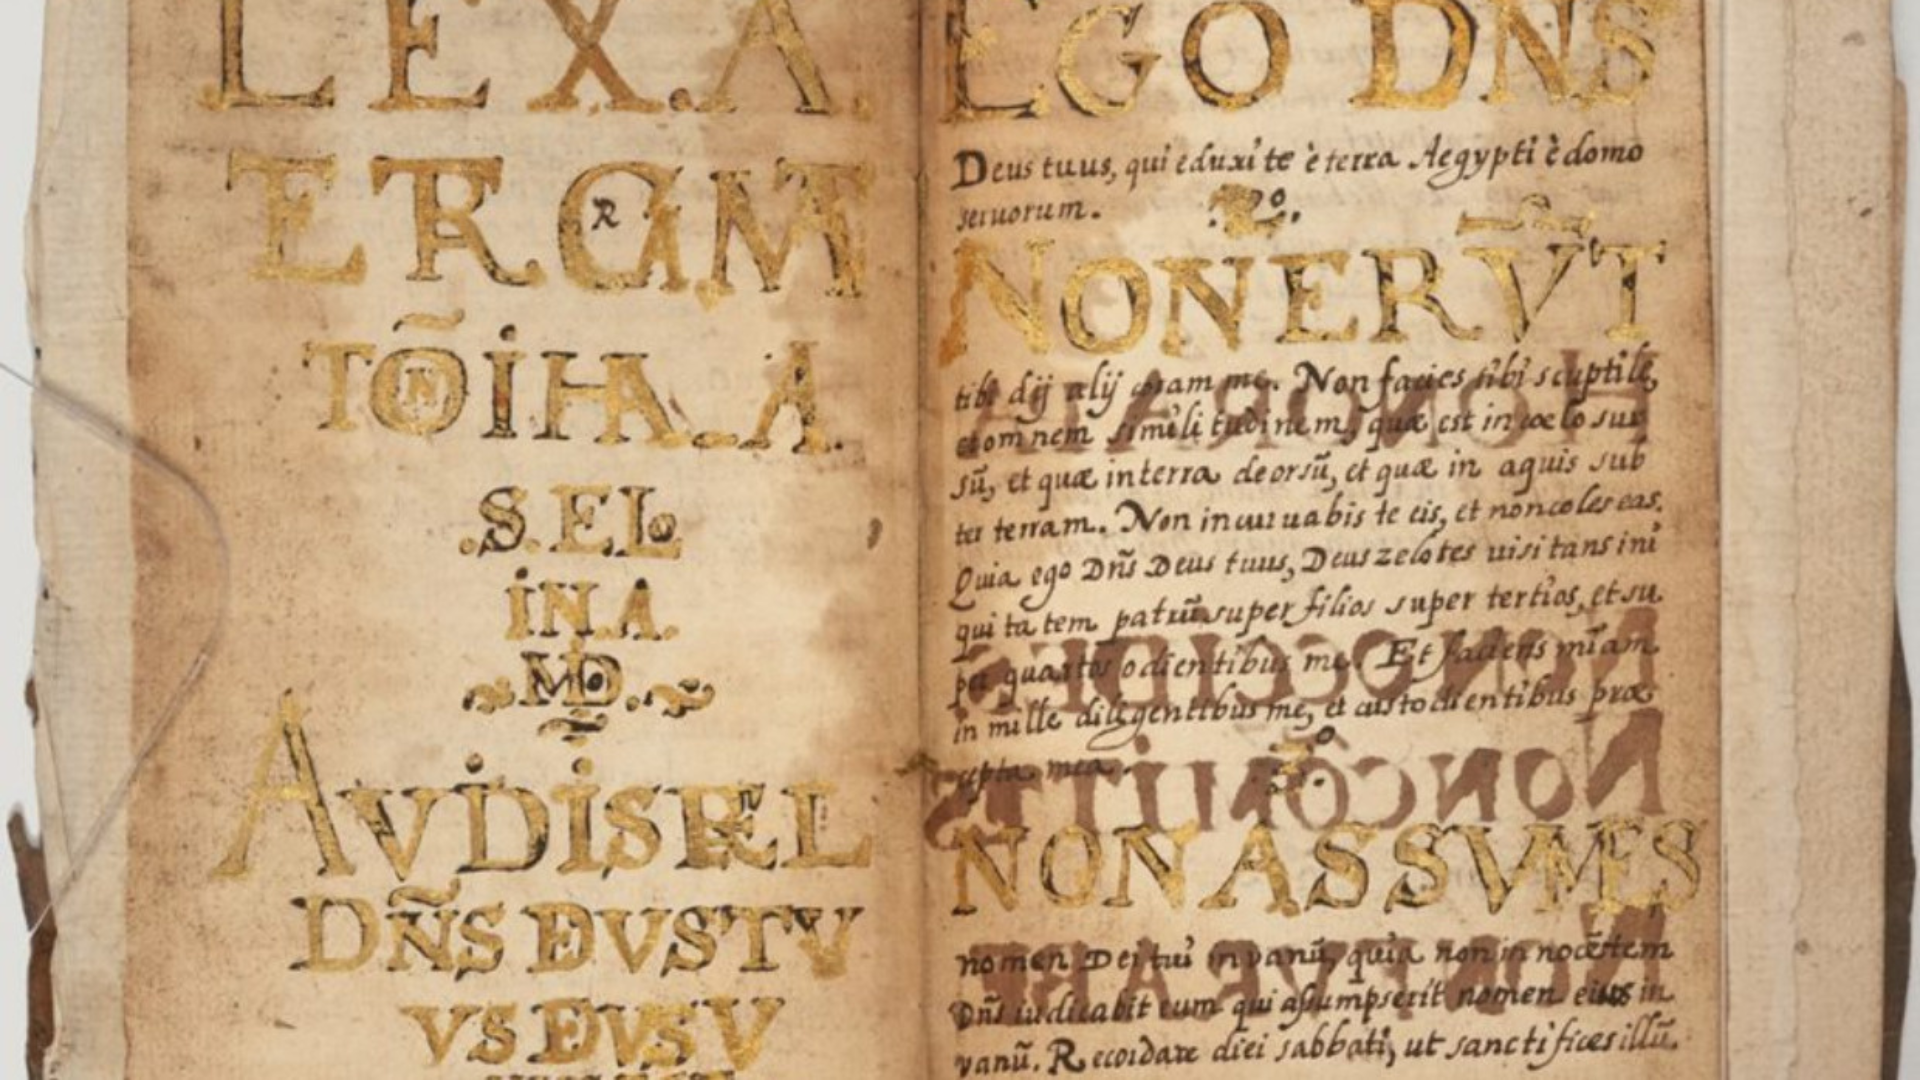 LEX.A.
ERGMT
TÕNIHA_A.
.S.EL
IN.A.
MD.
AVDISREL
DÑS DEVS TV
VS DEVS V
EGO DNS
Deus tuus, qui eduxi te è terra Aegypti è domo
seruorum.
2º.
NONERṼT
tibi dij alij coram me. Non facies tibi sculptile,
et omnem similitudinem, quæ est in cœlo sur
sũ, et quæ in terra deorsũ, et quæ in aquis sub
ter terram. Non incuruabis te eis, et non coles eas.
Quia ego Dñs Deus tuus, Deus zelotes uisitans ini
quitatem patrũ super filios super tertios, et su
per quartos odientibus me. Et faciens mĩam
in mille diligentibus me, et custodientibus præ
cepta mea.
3º.
NON ASSVMES
nomen Dei tui in vanũ, quia non innocẽtem
Dñs iudicabit eum qui assumpserit nomen eius in
vanũ. Recordare diei sabbati, ut sanctifices illũ.